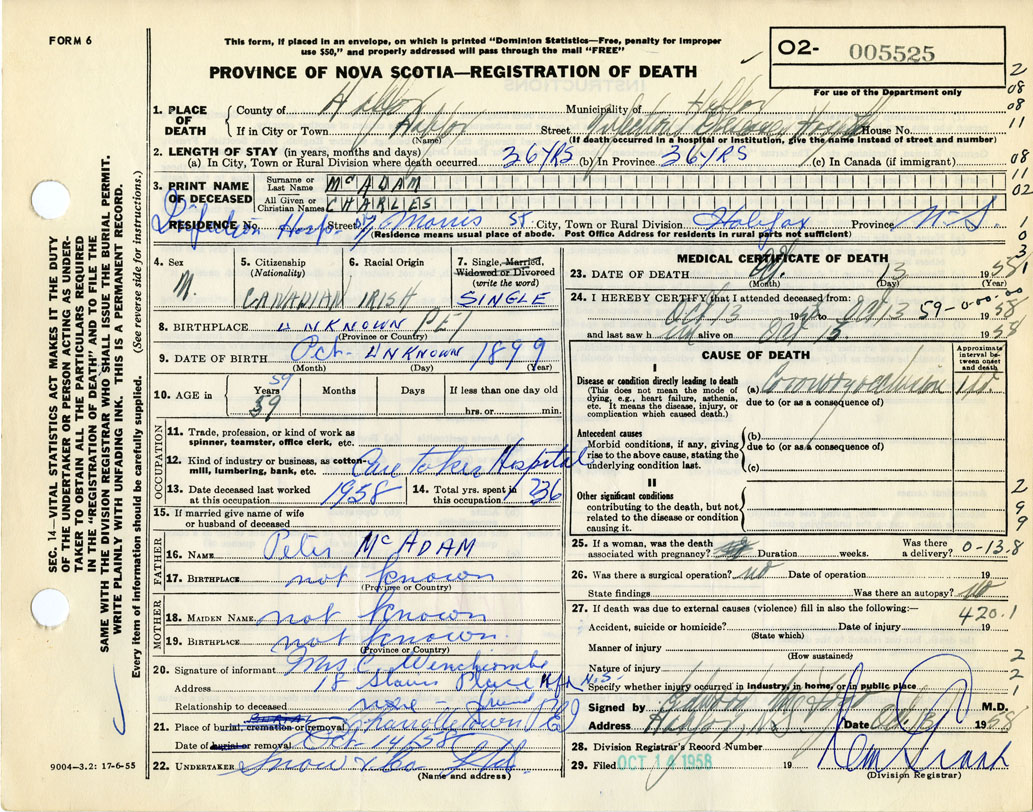 FORM 6
This form, if placed in an envelope, on which is printed "Dominion Statistics—Free, penalty for improper
use $50," and properly addressed will pass through the mail "FREE"
PROVINCE OF NOVA SCOTIA—REGISTRATION OF DEATH
O2- 005525
For use of the Department only
2
08
08
11
08
11
02
1
0
3
1
SEC. 14—VITAL STATISTICS ACT MAKES IT THE DUTY
OF THE UNDERTAKER OR PERSON ACTING AS UNDER-
TAKER TO OBTAIN ALL THE PARTICULARS REQUIRED
IN THE "REGISTRATION OF DEATH" AND TO FILE THE
SAME WITH THE DIVISION REGISTRAR WHO SHALL ISSUE THE BURIAL PERMIT.
WRITE PLAINLY WITH UNFADING INK. THIS IS A PERMANENT RECORD.
Every item of information should be carefully supplied. (See reverse side for instructions.)
1. PLACE OF DEATH
County of Halifax Municipality of Halifax
If in City or Town Halifax Street Infectious Diseases Hospital House No.
(Name) (If death occurred in a hospital or institution, give the name instead of street and number)
2. LENGTH OF STAY (in years, months and days)
(a) In City, Town or Rural Division where death occurred 36 YRS (b) In Province 36 YRS (c) In Canada (if immigrant)
3. PRINT NAME OF DECEASED
Surname or Last Name McADAM
All Given or Christian Names CHARLES
RESIDENCE No. Street Morris St City, Town or Rural Division Halifax Province N-S.
(Residence means usual place of abode. Post Office Address for residents in rural parts not sufficient)
4. Sex M.
5. Citizenship (Nationality) CANADIAN
6. Racial Origin IRISH
7. Single, Married, Widowed or Divorced (write the word) SINGLE
8. BIRTHPLACE UNKNOWN PEI
(Province or Country)
9. DATE OF BIRTH Oct- UNKNOWN 1899
(Month) (Day) (Year)
10. AGE in Years 59 59 Months Days If less than one day old hrs. or min.
OCCUPATION
11. Trade, profession, or kind of work as spinner, teamster, office clerk, etc.
12. Kind of industry or business, as cotton-mill, lumbering, bank, etc. Care taker Hospital
13. Date deceased last worked at this occupation 1958
14. Total yrs. spent in this occupation 36
15. If married give name of wife or husband of deceased
FATHER
16. NAME Peter McADAM
17. BIRTHPLACE not known
(Province or Country)
MOTHER
18. MAIDEN NAME not known
19. BIRTHPLACE not known
(Province or Country)
20. Signature of informant Mrs C. Winchcombe
Address 18 Place Hfx N.S.
Relationship to deceased none - friend
21. Place of burial, cremation or removal Charlottetown PEI
Date of burial or removal Oct 14/58
22. UNDERTAKER Snow & Co Ltd.
(Name and address)
9004—3.2: 17-6-55
MEDICAL CERTIFICATE OF DEATH
23. DATE OF DEATH Oct. 13 1958
(Month) (Day) (Year)
24. I HEREBY CERTIFY that I attended deceased from:
Oct 13 1958 to Oct 13 1958
59-0-00-00
and last saw h alive on Oct 1958
CAUSE OF DEATH
Approximate interval between onset and death
I
Disease or condition directly leading to death
(This does not mean the mode of dying, e.g., heart failure, asthenia, etc. It means the disease, injury, or complication which caused death.)
(a) Coronary occlusion
due to (or as a consequence of)
Antecedent causes
Morbid conditions, if any, giving rise to the above cause, stating the underlying condition last.
(b)
due to (or as a consequence of)
(c)
II
Other significant conditions
contributing to the death, but not related to the disease or condition causing it.
2
9
9
25. If a woman, was the death associated with pregnancy? Duration weeks. Was there a delivery? 0-13.8
26. Was there a surgical operation? no Date of operation 19
State findings Was there an autopsy? no
27. If death was due to external causes (violence) fill in also the following:— 420.1
Accident, suicide or homicide? Date of injury 19
(State which)
Manner of injury 2
(How sustained)
Nature of injury 2
Specify whether injury occurred in industry, in home, or in public place 1
Signed by M.D.
Address Halifax, N.S. Date Oct. 1958
28. Division Registrar's Record Number
29. Filed OCT 14 1958 19
(Division Registrar)